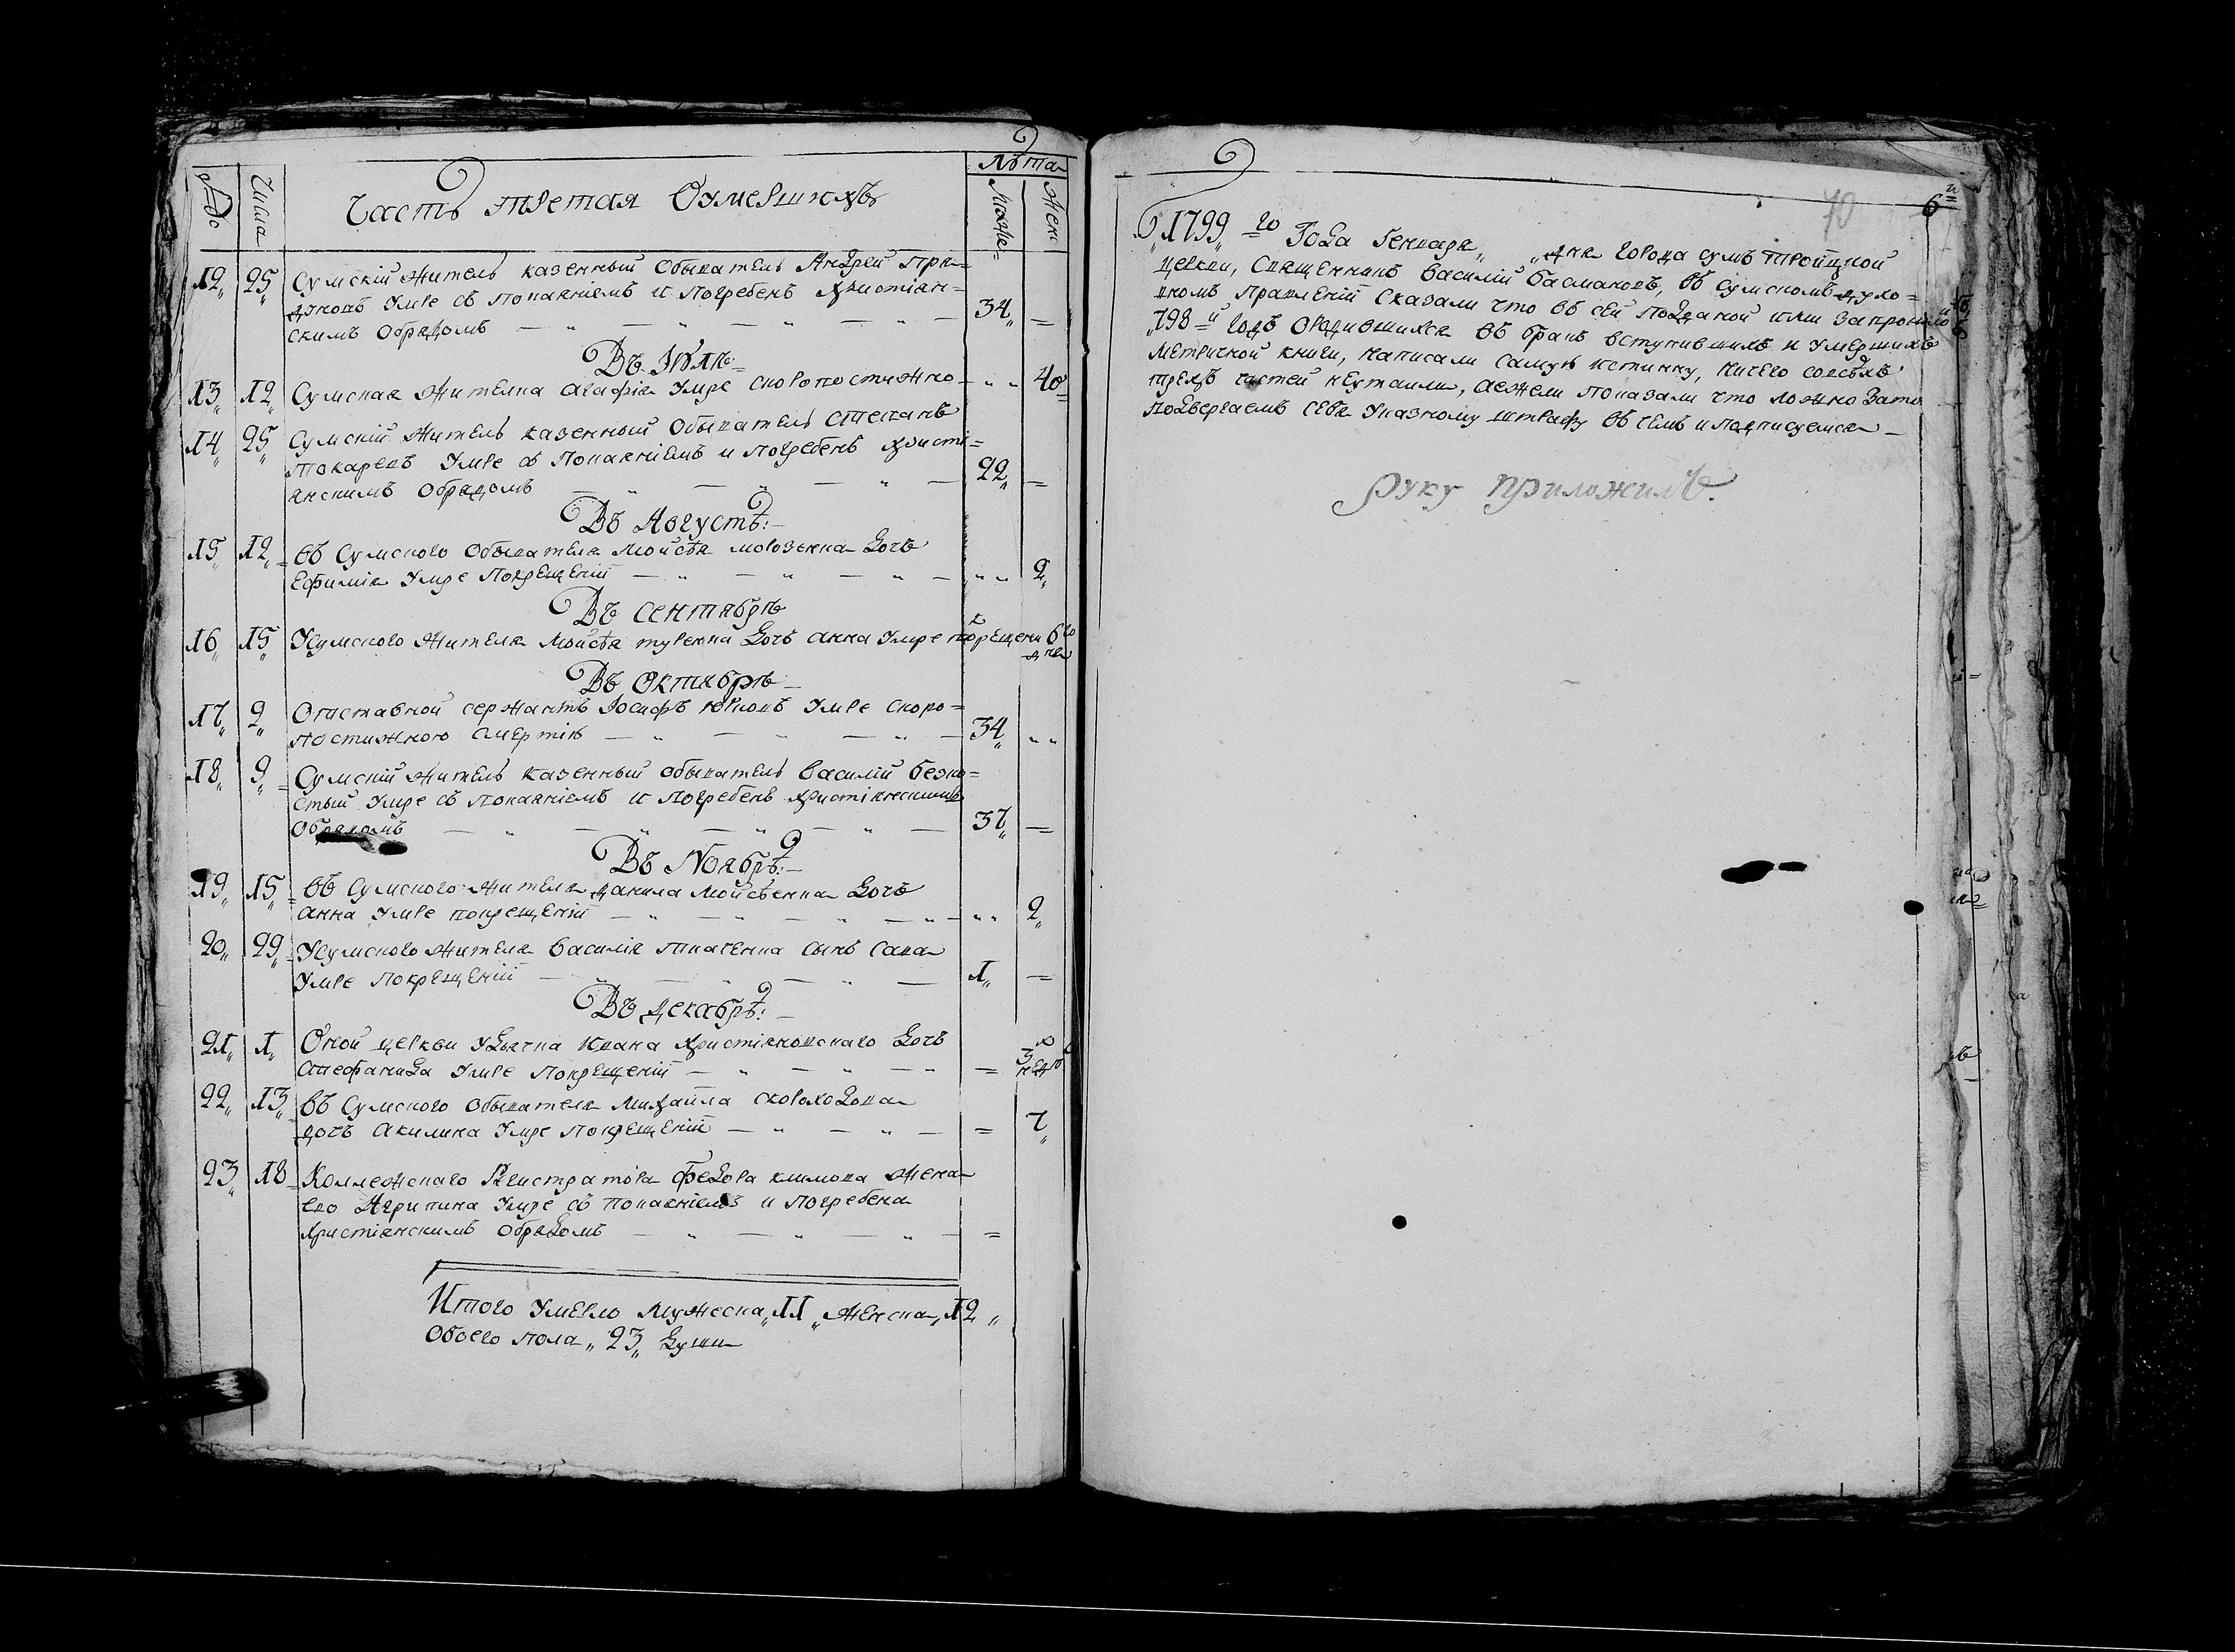 №
Числа
Часть третая Оумершихъ
Лѣта
Муже
Женс
12 25 Сумскій житель казенный обыватель Андрей Пра=
дуковъ умре съ покаяніемъ и погребенъ христіян=
скимъ обрядомъ — " — " — " — " — 34 —
Въ Іюлѣ
13 12 Сумская жителка Агафія умре скоропостижно — " " 40
14 25 Сумскій житель казенный обыватель Стефанъ
Токаревъ умре съ покаяніемъ и погребенъ христі=
янскимъ обрядомъ — " — " — " — 22 —
Въ Августѣ:
15 12 въ Сумского обывателя Мойсѣя Морозенка дочь
Ефимія умре покрещеніи — " — " — " — " " 2
Въ Сентябрѣ
16 15 Усумского жителя Мойсѣя дочь Анна умре покрещени 6
дне
Въ Октябрѣ
17 2 Отставной сержантъ Іосифъ Юрковъ умре скоро=
постижного смертію — " — " — " — 34 " "
18 9 Сумскій житель казенный обыватель Василій
умре съ покаяніемъ и погребенъ христіянскимъ
обрядомъ — " — " — " — " — 37 —
Въ Ноябрѣ:
19 15 въ Сумского жителя Данила Мойсѣенка дочь
Анна умре покрещеніи — " — " — " — " " 2
20 29 Усумского жителя Василія Ткаченка сынъ Сава
умре покрещеніи — " — " — " — 1 —
Въ Декабрѣ:
21 1 Оной церкви удьячка Ивана Христіяновскаго дочь
Стефанида умре покрещеніи — " — " — " — = 3
нед
22 13 въ Сумского обывателя Михайла Скороходова
дочь Акилина умре покрещеніи — " — " — = 7
23 18 Коллежскаго Регистратора Федора Климова жена
его Агрипина умре съ покаяніемъ и погребена
христіянскимъ обрядомъ — " — " — " — =
Итого умерло мужеска 11 женска 12
обоего пола 23 души
70
1799 го года Генваря " " дня города Сумъ Тройцкой
церкви, Священникъ Василій Басмановъ, въ Сумскомъ духо=
вномъ правленіи сказали что въ сей поданой нами за прошлой
798 й годъ ородившихся въ бракъ вступившихъ и умершихъ
метричной книги, написали самую истинну, ничего совсѣхъ
трехъ частей неутаили, аежели показали что ложно зато
подвергаемъ себя указному штрафу въ чемъ и подписуемся —
руку приложилъ.